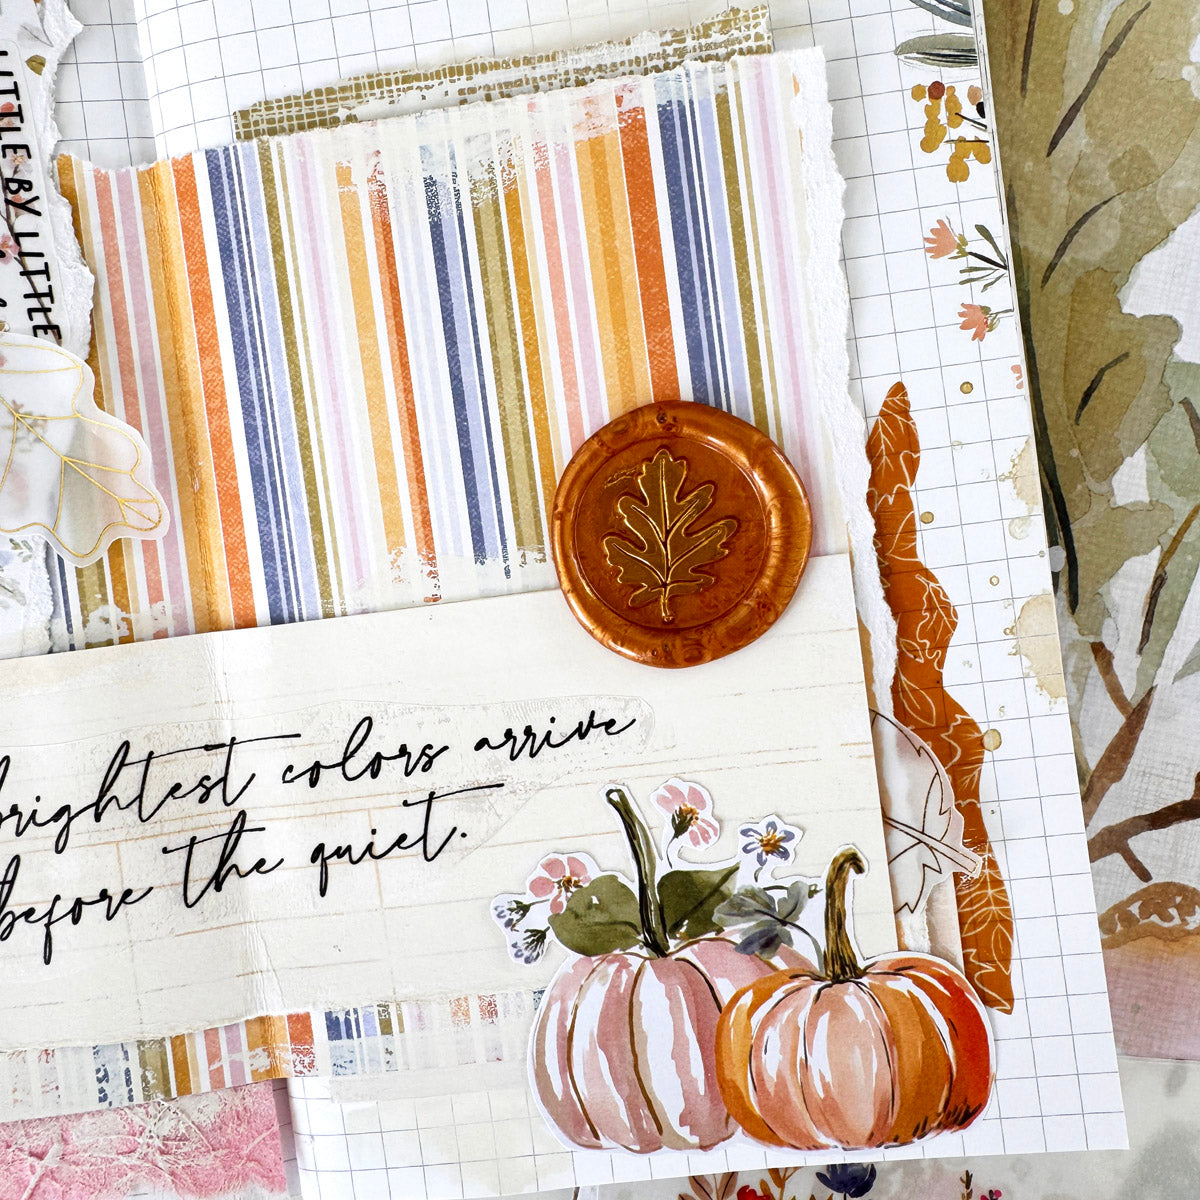 LITTLE BY LITTLE
brightest colors arrive
before the quiet.